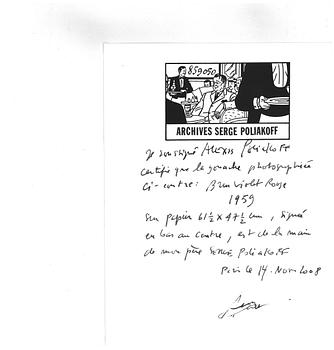 859050
ARCHIVES SERGE POLIAKOFF
Je soussigné Alexis POLIAKOFF
certifie que la gouache photographiée
ci-contre: Brun Violet Rouge
1959
sur papier 61½ x 47½ cm, signée
en bas au centre, est de la main
de mon père Serge POLIAKOFF
Paris le 14. Nov. 2008